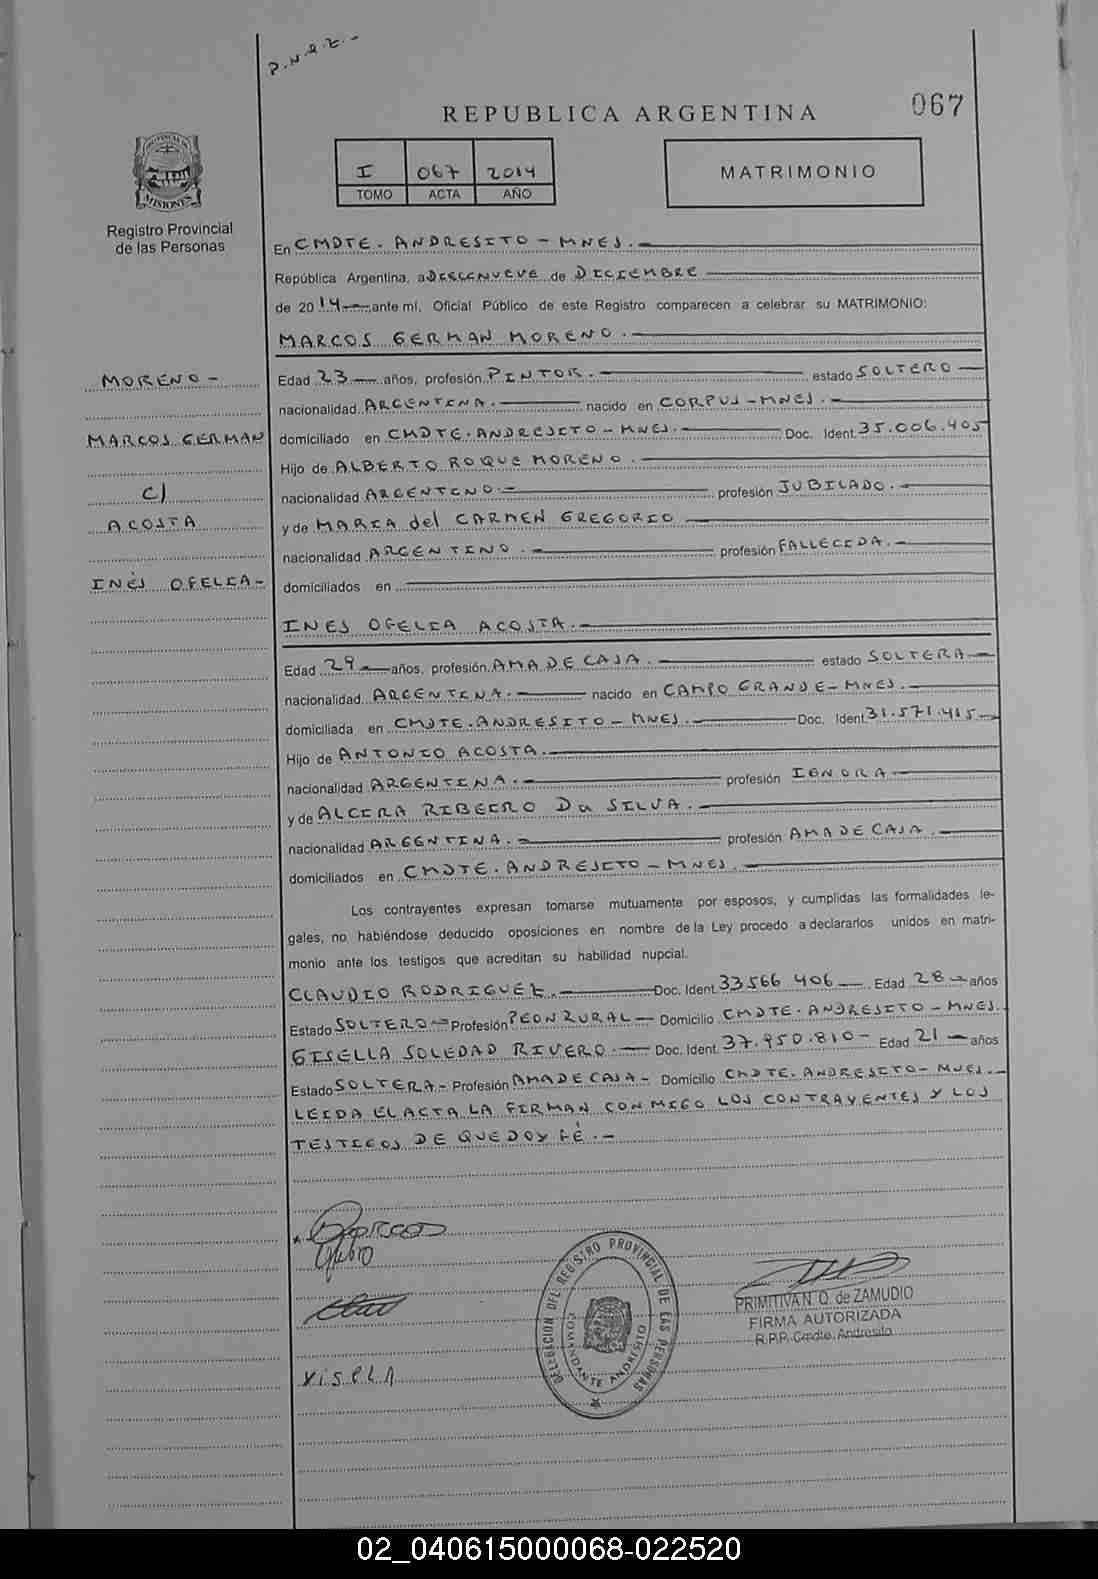 P.N.R.Z.-
REPUBLICA ARGENTINA
067
PROVINCIA DE
MISIONES
Registro Provincial
de las Personas
I 067 2014
TOMO ACTA AÑO
MATRIMONIO
En CMDTE. ANDRESITO - MNES.-
República Argentina, a DIECINUEVE de DICIEMBRE
de 2014 ante mí, Oficial Público de este Registro comparecen a celebrar su MATRIMONIO:
MARCOS GERMAN MORENO.
MORENO -
MARCOS GERMAN
C/
ACOSTA
INÉS OFELIA-
Edad 23 años, profesión PINTOR. estado SOLTERO
nacionalidad ARGENTINA. nacido en CORPUS-MNES.
domiciliado en CMDTE.ANDRESITO-MNES. Doc. Ident. 35.006.405
Hijo de ALBERTO ROQUE MORENO.
nacionalidad ARGENTINO.- profesión JUBILADO.-
y de MARIA del CARMEN GREGORIO
nacionalidad ARGENTINO.- profesión FALLECIDA.-
domiciliados en
INES OFELIA ACOSTA.
Edad 29 años, profesión AMA DE CASA. estado SOLTERA-
nacionalidad ARGENTINA. nacido en CAMPO GRANDE-MNES.
domiciliada en CMDTE.ANDRESITO-MNES. Doc. Ident. 31.571.415
Hijo de ANTONIO ACOSTA.
nacionalidad ARGENTINA. profesión IGNORA
y de ALCIRA RIBEIRO Da SILVA.
nacionalidad ARGENTINA. profesión AMA DE CASA.
domiciliados en CMDTE. ANDRESITO-MNES.
Los contrayentes expresan tomarse mutuamente por esposos, y cumplidas las formalidades le-
gales, no habiéndose deducido oposiciones en nombre de la Ley procedo a declararlos unidos en matri-
monio ante los testigos que acreditan su habilidad nupcial.
CLAUDIO RODRIGUEZ. Doc. Ident. 33.566 406 Edad 28 años
Estado SOLTERO Profesión PEON RURAL Domicilio CMDTE. ANDRESITO-MNES.
GISELLA SOLEDAD RIVERO. Doc. Ident. 37.950.810- Edad 21 años
Estado SOLTERA- Profesión AMA DE CASA- Domicilio CMDTE. ANDRESITO-MNES.
LEIDA EL ACTA LA FIRMAN CONMIGO LOS CONTRAYENTES Y LOS
TESTIGOS DE QUE DOY FÉ.-
DELEGACION DEL REGISTRO PROVINCIAL DE LAS PERSONAS
COMANDANTE ANDRESITO
PRIMITIVA N. Q. de ZAMUDIO
FIRMA AUTORIZADA
R.P.P. Cmdte. Andresito
02_040615000068-022520